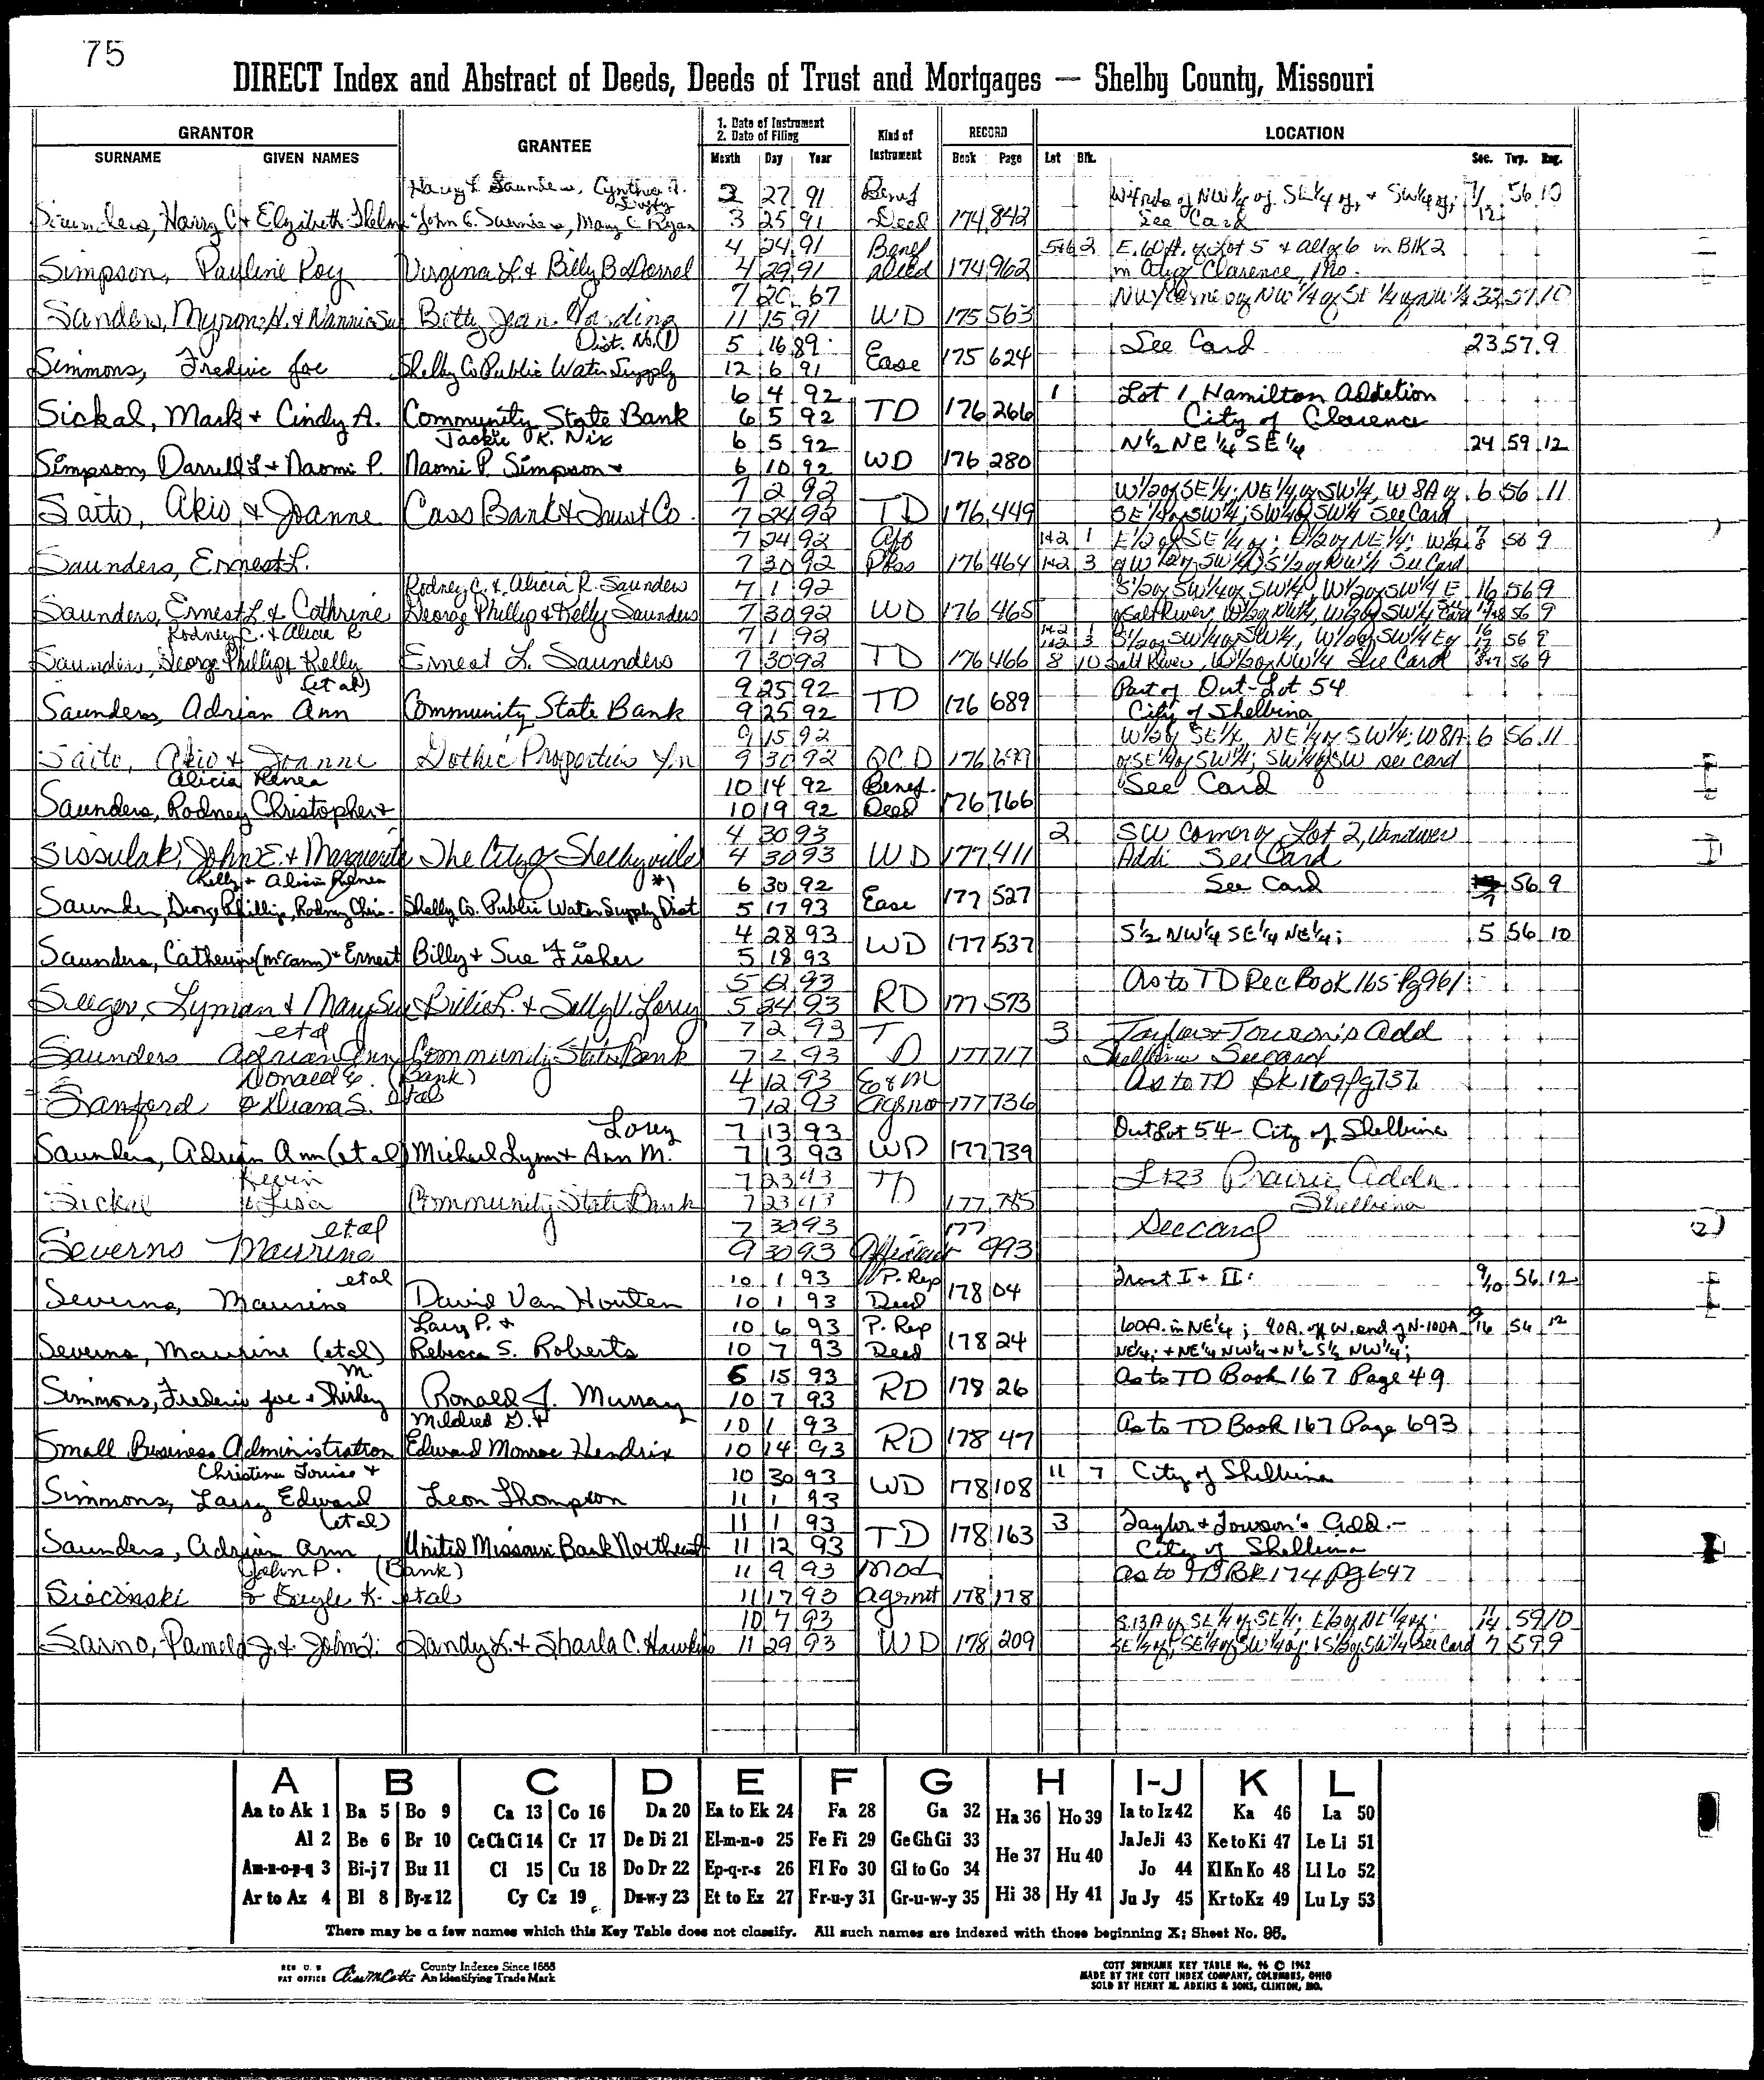 75
DIRECT Index and Abstract of Deeds, Deeds of Trust and Mortgages — Shelby County, Missouri
GRANTOR GRANTEE 1. Date of Instrument 2. Date of Filing Kind of Instrument RECORD LOCATION
SURNAME GIVEN NAMES Month Day Year Book Page Lot Blk. Sec. Twp. Rng.
Harry L. Saunders, Cynthia A. 2 27 91 Benef of NW1/4 of SE1/4 of, + SW1/4 of; 56 10
Saunders, Harry C + Elizabeth Thelma John E. Saunders, Mary C Ryan 3 25 91 Deed 174 842 See Card 12
4 24 91 Benef 5+6 2 E. of Lot 5 + all of 6 in Blk 2
Simpson, Pauline Roy Virginia L + Billy B 4 29 91 Deed 174 962 in City of Clarence, Mo.
7 20 67 of NW 1/4 of SE 1/4 of NW 1/4 33 57 10
Sanders, Myron H. + Nannie Sue Betty Jean Harding 11 15 91 WD 175 563
Dist. No. 1 5 16 89 See Card 23 57 9
Simmons, Fredric Joe Shelby Co Public Water Supply 12 6 91 Ease 175 624
6 4 92 1 Lot 1 Hamilton Addition
Sickal, Mark + Cindy A. Community State Bank 6 5 92 TD 176 266 City of Clarence
Jackie K. Nix 6 5 92 N1/2 NE1/4 SE1/4 24 59 12
Simpson, Darrell L + Naomi P. Naomi P. Simpson + 6 10 92 WD 176 280
7 2 92 W1/2 of SE1/4; NE1/4 of SW1/4, W 8A of 6 56 11
Saito, Akio, + Joanne Cass Bank + Trust Co. 7 24 92 TD 176 449 SE1/4 of SW1/4; SW1/4 of SW1/4 See Card
7 24 92 1+2 1 E1/2 of SE1/4 of; E1/2 of NE1/4; W1/2 7 8 56 9
Saunders, Ernest L. 7 30 92 176 464 1+2 3 of W1/2 of SW1/4; S1/2 of NW1/4 See Card
Rodney C. + Alicia R. Saunders 7 1 92 S1/2 of SW1/4 of SW1/4, W1/2 of SW1/4 E 16 56 9
Saunders, Ernest L. + Cathrine George Phillip + Kelly Saunders 7 30 92 WD 176 465 of Salt River, W1/2 of NW1/4, W1/2 of SW1/4 See Card 56 9
Rodney C. + Alicia R 7 1 92 1+2 1 S1/2 of SW1/4 of SW1/4, W1/2 of SW1/4 E of 16 56 9
Saunders, George Phillip + Kelly Ernest L. Saunders 7 30 92 TD 176 466 1+2 3 8 10 Salt River, W1/2 of NW1/4 See Card 56 9
(et al) 9 25 92 Part of Out-Lot 54
Saunders, Adrian Ann Community State Bank 9 25 92 TD 176 689 City of Shelbina
9 15 92 W1/2 of SE1/4, NE1/4 of SW1/4; W8A 6 56 11
Saito, Akio + Joanne Gothic Properties 9 30 92 QCD 176 699 of SE1/4 of SW1/4; SW1/4 of SW see card
Alicia Renea 10 14 92 Benef. See Card
Saunders, Rodney Christopher + 10 19 92 Deed 176 766
4 30 93 2 SW Corner of Lot 2, Vandiver
Sissulak, John E. + Marguerite The City of Shelbyville 4 30 93 WD 177 411 Addi See Card
Kelly + Alicia Renea #1 6 30 92 See Card 7 56 9
Saunders, George Phillip, Rodney Chris- Shelby Co. Public Water Supply Dist 5 17 93 Ease 177 527
4 28 93 S1/2 NW1/4 SE1/4 NE1/4; 5 56 10
Saunders, Catherine (McCann) + Ernest Billy + Sue Fisher 5 18 93 WD 177 537
5 93 As to TD Rec Book 165 Pg 961
Seeger, Lyman + Mary Sue Billie L. + Sally V. Lorey 5 24 93 RD 177 573
et al 7 2 93 3 Taylor + Towson's Add
Saunders Adrian Ann Community State Bank 7 2 93 TD 177 717 Shelbina See card
Donald E. (Bank) 4 12 93 E & M As to TD Bk 169 Pg 737
Sanford & Diana S. et al 7 12 93 177 736
Lorey 7 13 93 Outlot 54 - City of Shelbina
Saunders, Adrian Ann (et al) Michael Lynn + Ann M. 7 13 93 WD 177 739
Kevin 7 23 93 Lt 23 Prairie Addn
Sickal & Lisa Community State Bank 7 23 93 TD 177 785 Shelbina
et al 7 30 93 177 See card
Severns Maurine 9 30 93 Affidavit 993
et al 10 1 93 P. Rep Tract I + II: 9/10 56 12
Severns, Maurine David Van Houten 10 1 93 Deed 178 04
Larry P. + 10 6 93 P. Rep 60A. in NE1/4; 90A. off W. end of N-100A 9 16 56 12
Severns, Maurine (et al) Rebecca S. Roberts 10 7 93 Deed 178 24 NE1/4; + NE1/4 NW1/4 + N1/2 S1/2 NW1/4;
M. 6 15 93 As to TD Book 167 Page 49
Simmons, Frederic Joe + Shirley Ronald J. Murray 10 7 93 RD 178 26
Mildred G. + 10 1 93 As to TD Book 167 Page 693
Small Business Administration Edward Monroe Hendrix 10 14 93 RD 178 47
Christina Louise + 10 30 93 11 7 City of Shelbina
Simmons, Larry Edward Leon Thompson 11 1 93 WD 178 108
(et al) 11 1 93 3 Taylor + Towson's Add.-
Saunders, Adrian Ann United Missouri Bank Northeast 11 12 93 TD 178 163 City of Shelbina
John P. (Bank) 11 9 93 Mod As to TD Bk 174 Pg 647
Siecinski & Gayle K. et al 11 17 93 agrmt 178 178
10 7 93 S.13A of SE1/4 of SE1/4; E1/2 of NE1/4 of; 14 59 10
Sarno, Pamela J. + John L. Randy L. + Sharla C. Hawkins 11 29 93 WD 178 209 SE1/4 of, SE1/4 of SW1/4 of; S1/2 of SW1/4 See Card 7 59 9
A B C D E F G H I-J K L
Aa to Ak 1 Ba 5 Bo 9 Ca 13 Co 16 Da 20 Ea to Ek 24 Fa 28 Ga 32 Ha 36 Ho 39 Ia to Iz 42 Ka 46 La 50
Al 2 Be 6 Br 10 Ce Ch Ci 14 Cr 17 De Di 21 El-m-n-o 25 Fe Fi 29 Ge Gh Gi 33 He 37 Hu 40 Ja Je Ji 43 Ke to Ki 47 Le Li 51
Am-n-o-p-q 3 Bi-j 7 Bu 11 Cl 15 Cu 18 Do Dr 22 Ep-q-r-s 26 Fl Fo 30 Gl to Go 34 Jo 44 Kl Kn Ko 48 Ll Lo 52
Ar to Az 4 Bl 8 By-z 12 Cy Cz 19 Du-w-y 23 Et to Ez 27 Fr-u-y 31 Gr-u-w-y 35 Hi 38 Hy 41 Ju Jy 45 Kr to Kz 49 Lu Ly 53
There may be a few names which this Key Table does not classify. All such names are indexed with those beginning X; Sheet No. 95.
REG U. S. PAT OFFICE County Indexes Since 1888 An Identifying Trade Mark
COTT SURNAME KEY TABLE No. 96 © 1962
MADE BY THE COTT INDEX COMPANY, COLUMBUS, OHIO
SOLD BY HENRY M. ADKINS & SONS, CLINTON, MO.